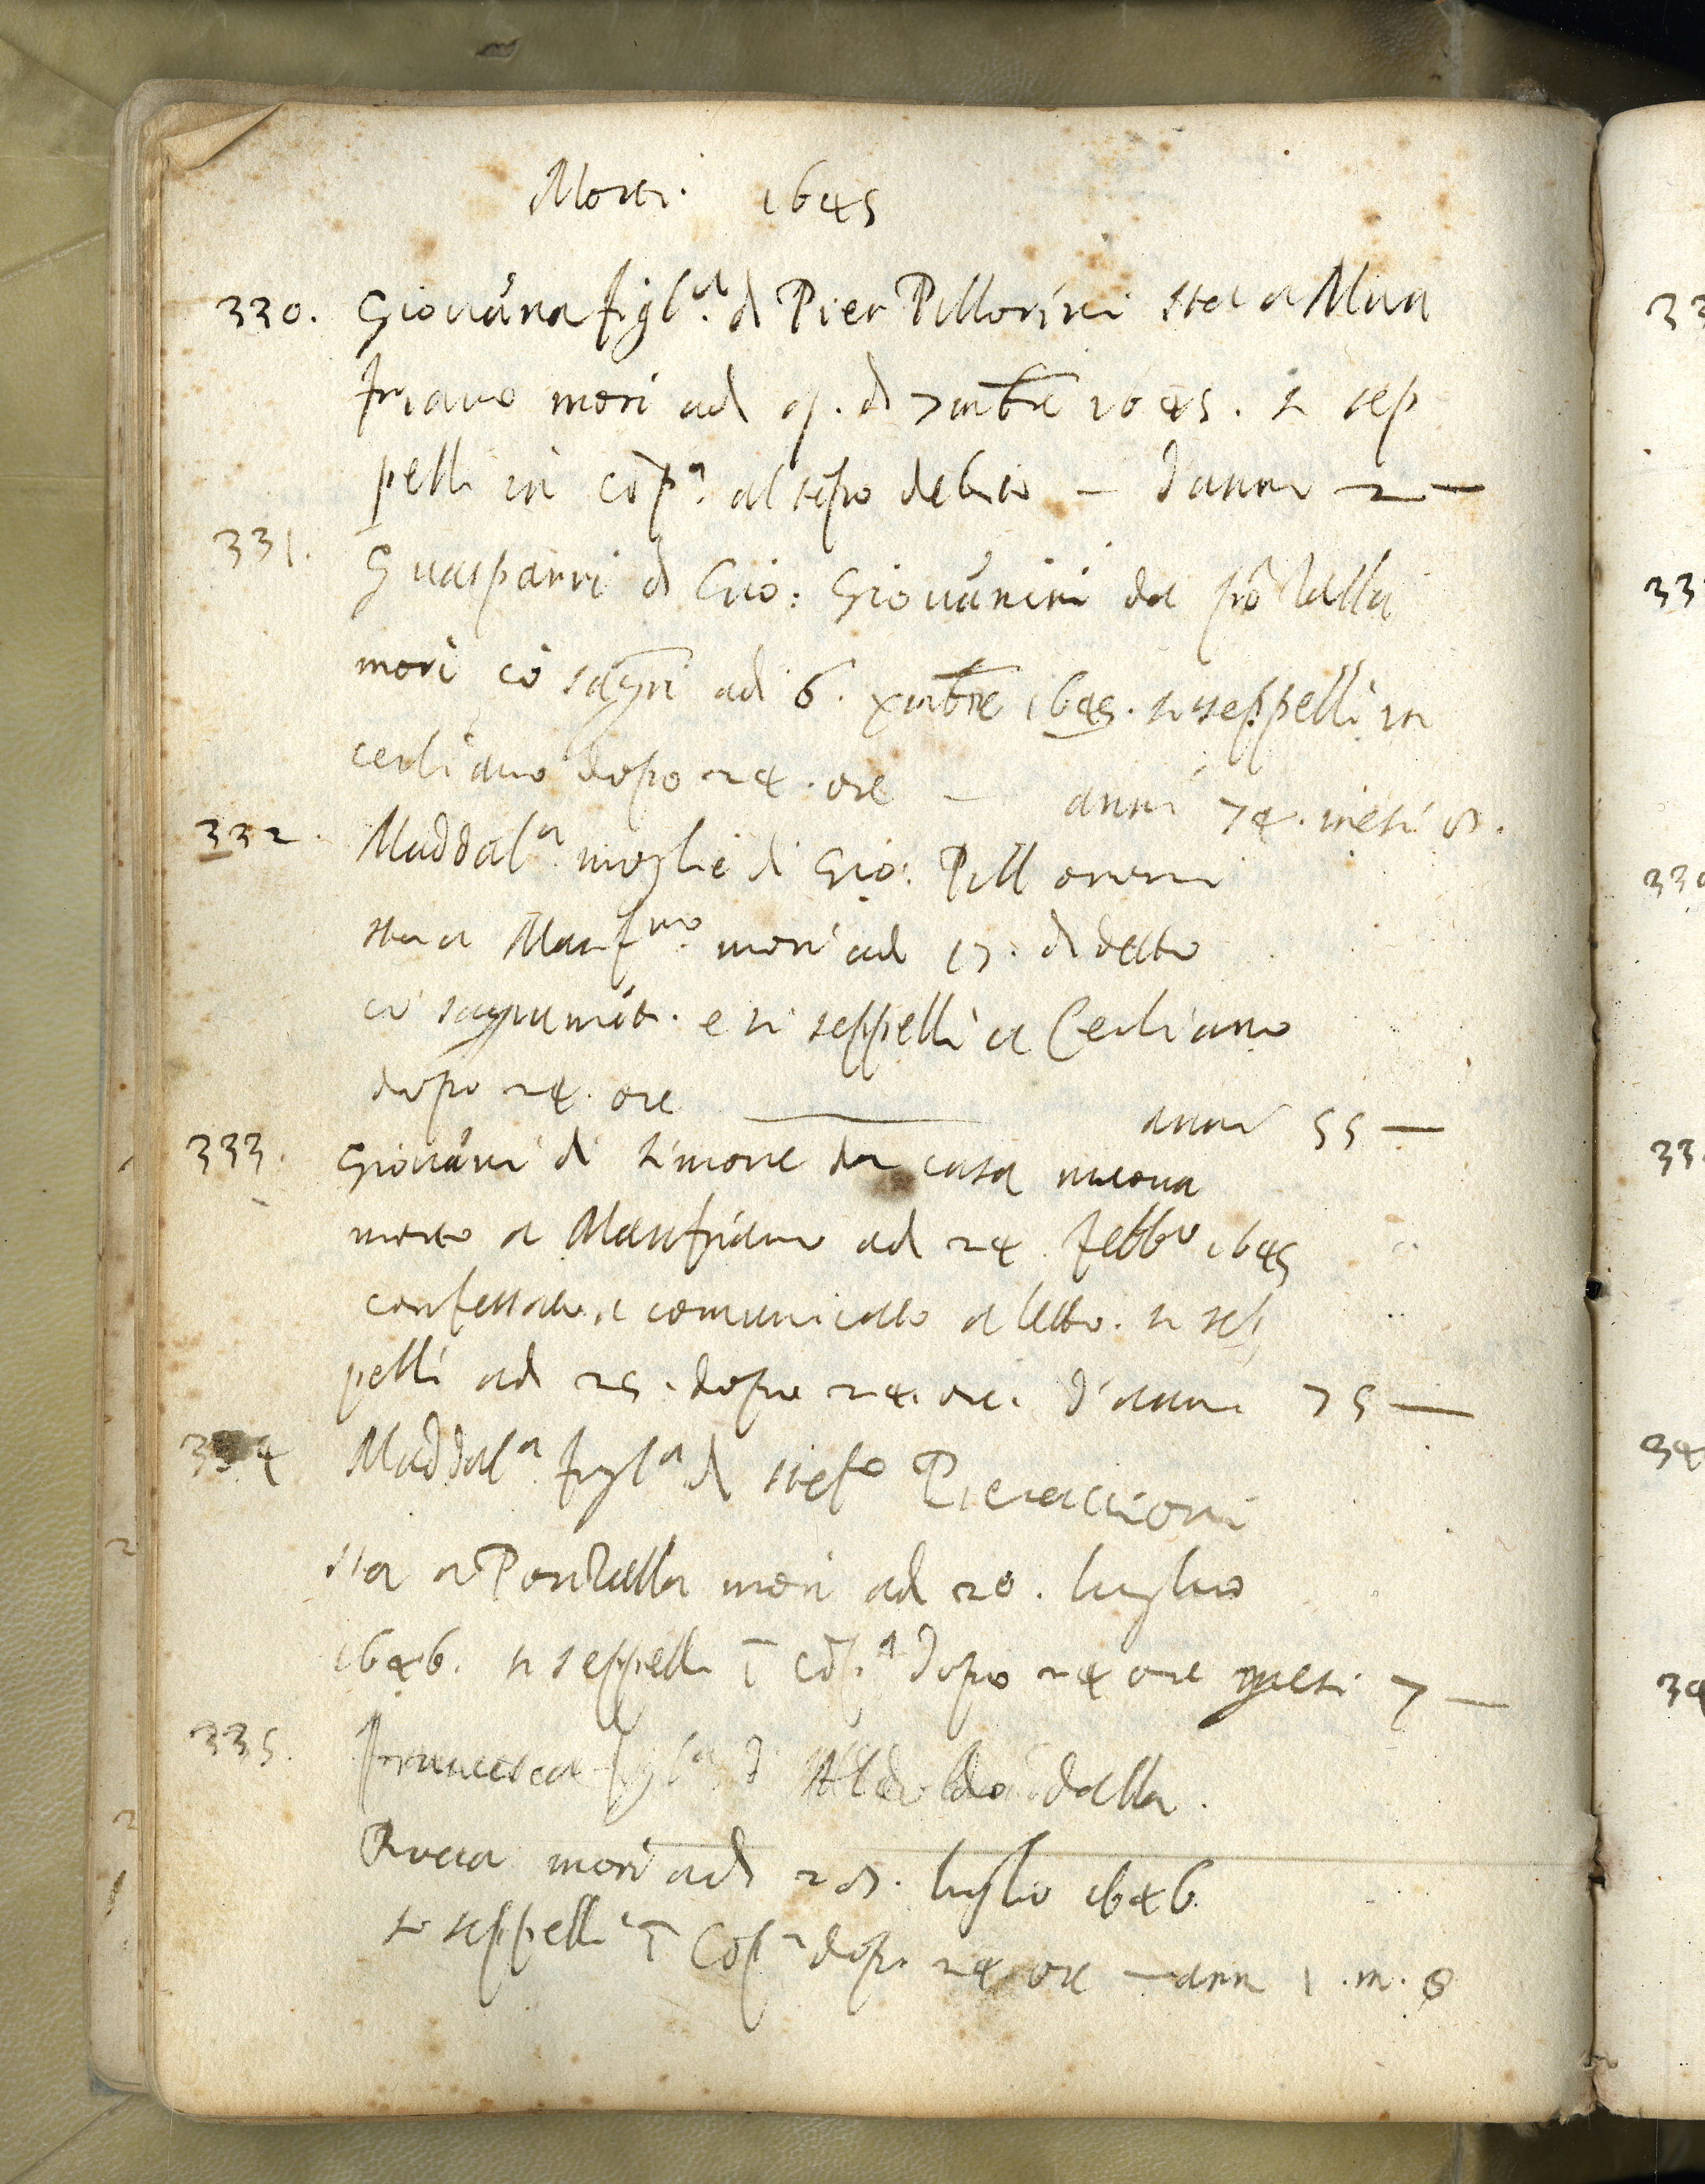 Morti. 1645
330. Giovāna figl.a di Pier Pillorini sta a Man
friano morì adì 9. di 7mbre 1645. si sep
pellì in cōp.a al tēpo debito — d'anni 2 —
331. Guasparri di Gio: Giovānini da pōtella
morì cō sagrī adì 6. xmbre 1645. si seppellì in
cerliano dopo 24. ore — anni 74. mesi 8.
332. Maddal.a moglie di Gio: Pillorini
sta a Manf.no morì adì 17. di detto
cō sagramēti. e si seppellì a Cerliano
dopo 24. ore — anni 55 —
333. Giovāni di Simone da casa nuova
morto a Manfriano adì 24. febb.o 1645
confessato, e comunicato a letto. si sep
pellì adì 25. dopo 24. ore. d'anni 75 —
334 Maddal.a figl.a di stef.o Pieraccioni
sta a Pontella morì adì 20. luglio
1646. si seppellì ī cōp.a dopo 24 ore mesi 7 —
335. francesca figl.a di dalla
Rocca morì adì 28. luglio 1646.
si seppellì ī Cōp.a dopo 24 ore — ann 1. m. 8
33
33
33
33
34
34